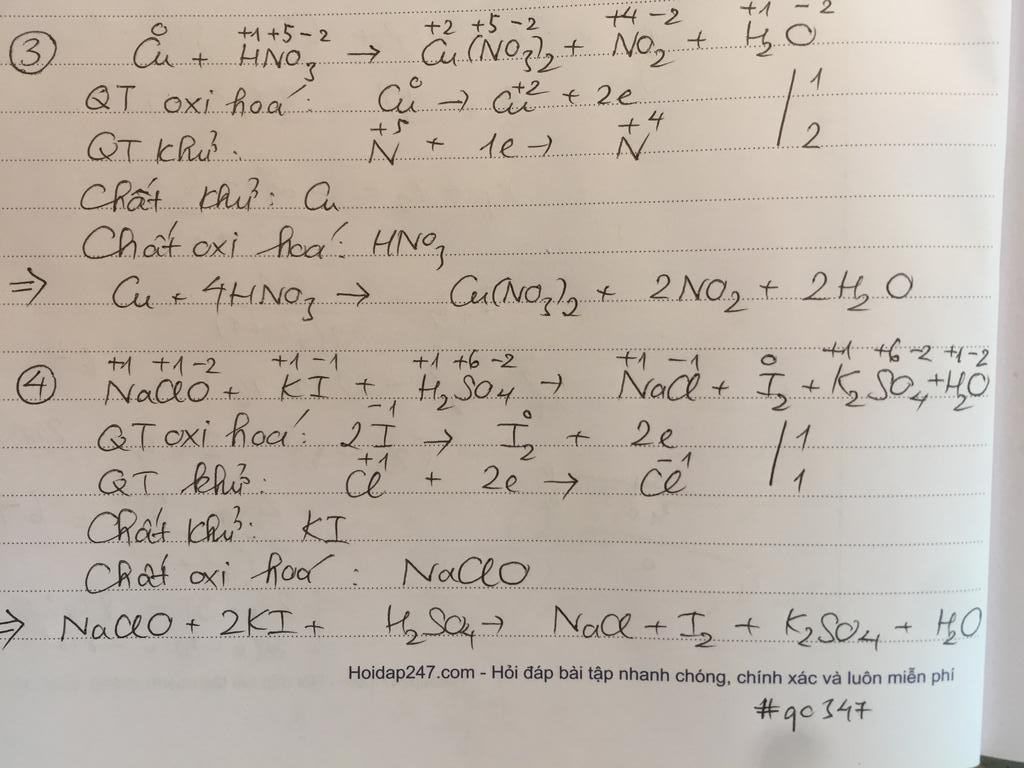 0 +1 +5 -2 +2 +5 -2 +4 -2 +1 -2
③ Cu + HNO₃ → Cu(NO₃)₂ + NO₂ + H₂O
QT oxi hoá: Cu⁰ → Cu⁺² + 2e | 1
QT khử: N⁺⁵ + 1e → N⁺⁴ | 2
Chất khử: Cu
Chất oxi hoá: HNO₃
⇒ Cu + 4HNO₃ → Cu(NO₃)₂ + 2NO₂ + 2H₂O
+1 +1 -2 +1 -1 +1 +6 -2 +1 -1 0 +1 +6 -2 +1 -2
④ NaClO + KI + H₂SO₄ → NaCl + I₂ + K₂SO₄ + H₂O
QT oxi hoá: 2I⁻¹ → I₂⁰ + 2e | 1
QT khử: Cl⁺¹ + 2e → Cl⁻¹ | 1
Chất khử: KI
Chất oxi hoá: NaClO
⇒ NaClO + 2KI + H₂SO₄ → NaCl + I₂ + K₂SO₄ + H₂O
Hoidap247.com - Hỏi đáp bài tập nhanh chóng, chính xác và luôn miễn phí
#90347